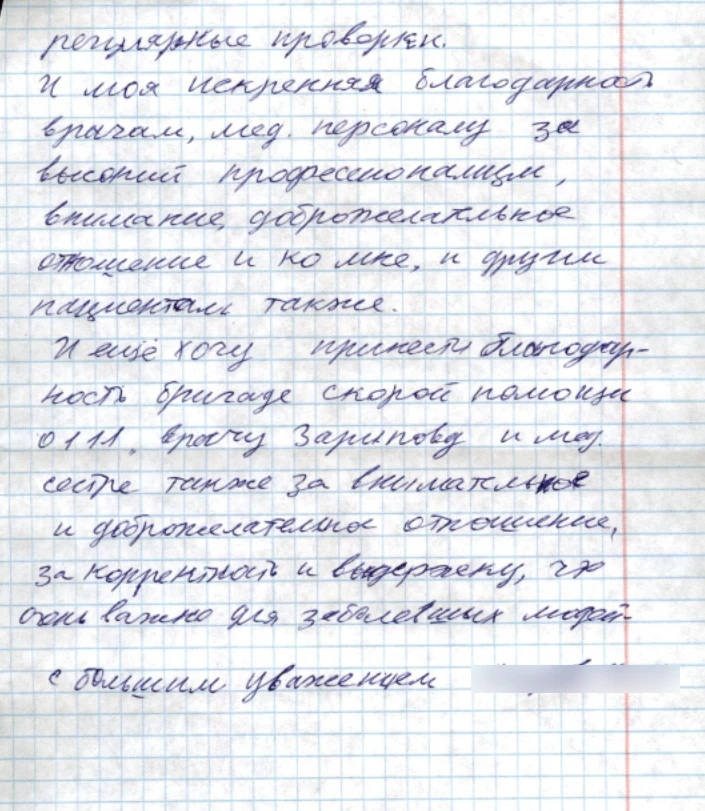 регулярные проверки.
И моя искренняя благодарность
врачам, мед. персоналу за
высокий профессионализм,
внимание, доброжелательное
отношение и ко мне, и другим
пациентам также.
И ещё хочу принести благодар-
ность бригаде скорой помощи
0111, врачу Зарипову и мед.
сестре также за внимательное
и доброжелательное отношение,
за корректность и выдержку, что
очень важно для заболевших людей.
с большим уважением